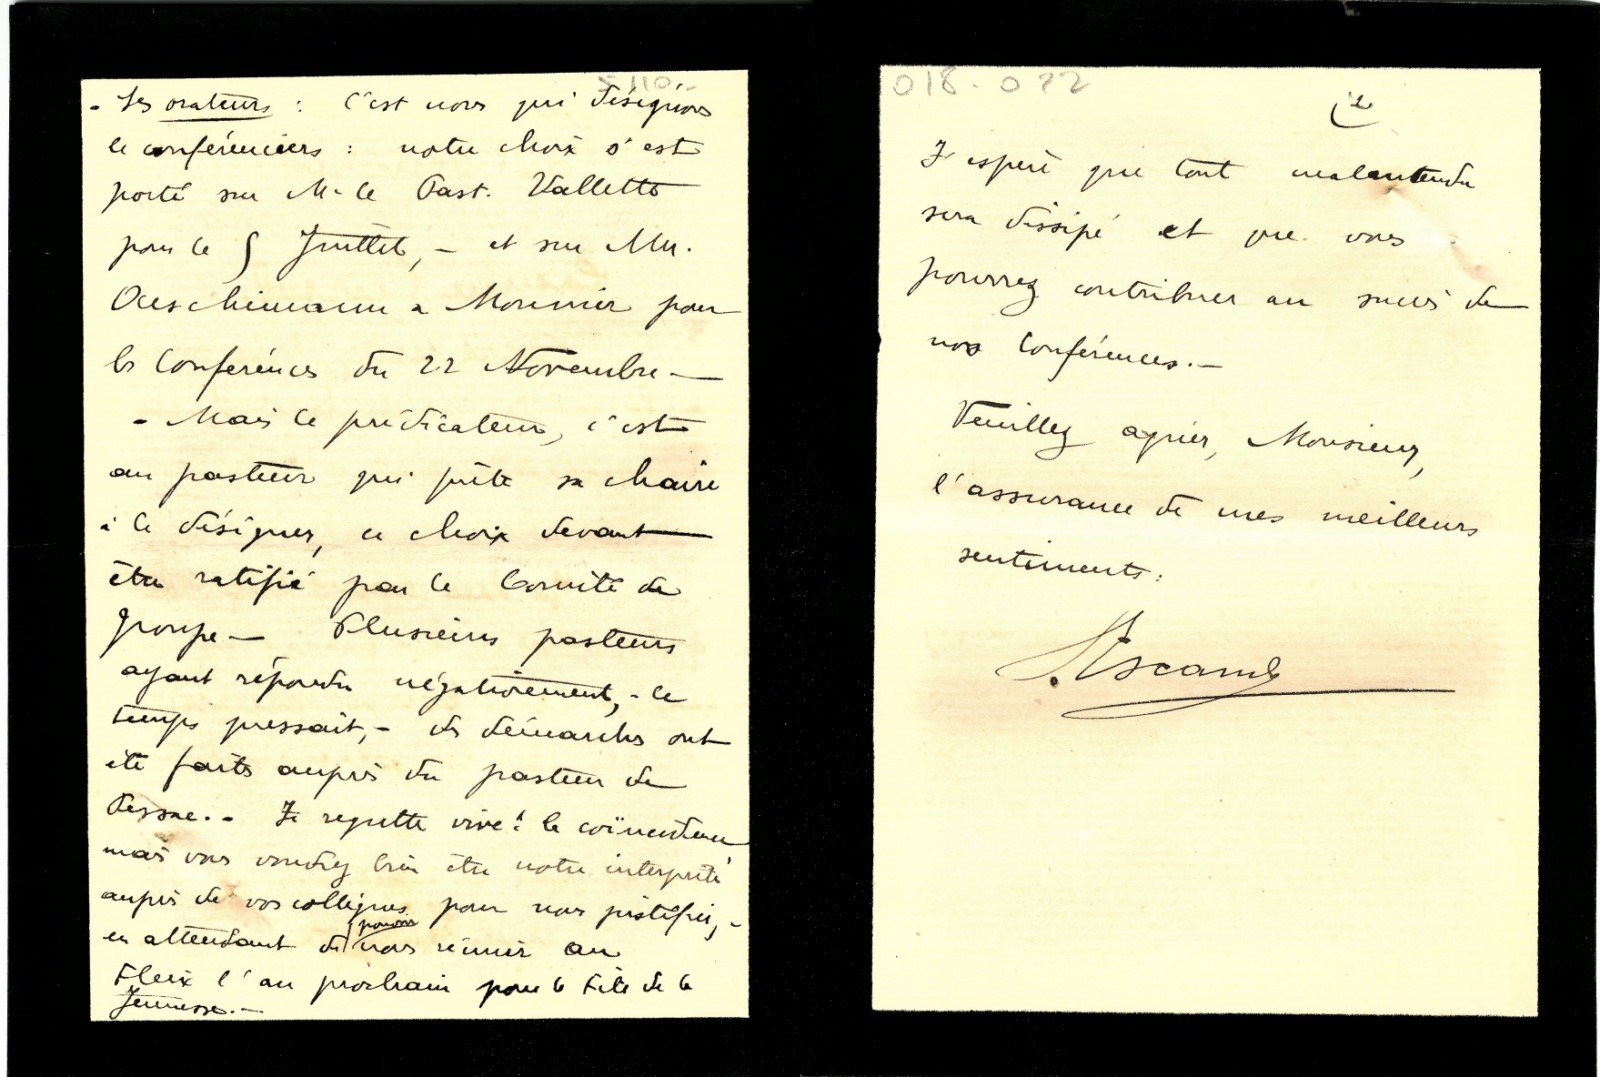 5110.-
- Les orateurs : C'est nous qui désignons
le conférenciers : notre choix s'est
porté sur M- le Past. Vallette
pour le 5 Juillet, - et sur MM.
Oeschimann a Mounier pour
les Conférences du 22 Novembre -
- Mais le prédicateur, c'est
au pasteur qui prête sa chaire
à le désigner, ce choix devant
être ratifié par le Comité de
groupe - Plusieurs pasteurs
ayant répondu négativement, - le
temps pressait, - des démarches ont
été faites auprès du pasteur de
Pessac. - Je regrette vivet la coïncidence
mais vous voudrez bien être notre interprète
auprès de vos collègues pour nous justifier, -
en attendant de pouvoir nous réunir au
Fleix l'an prochain pour la Fête de la
Jeunesse. -
018. 022
J'espère que tout malentendu
sera dissipé et que vous
pourrez contribuer au succès de
nos Conférences. -
Veuillez agréer, Monsieur,
l'assurance de mes meilleurs
sentiments :
Escande